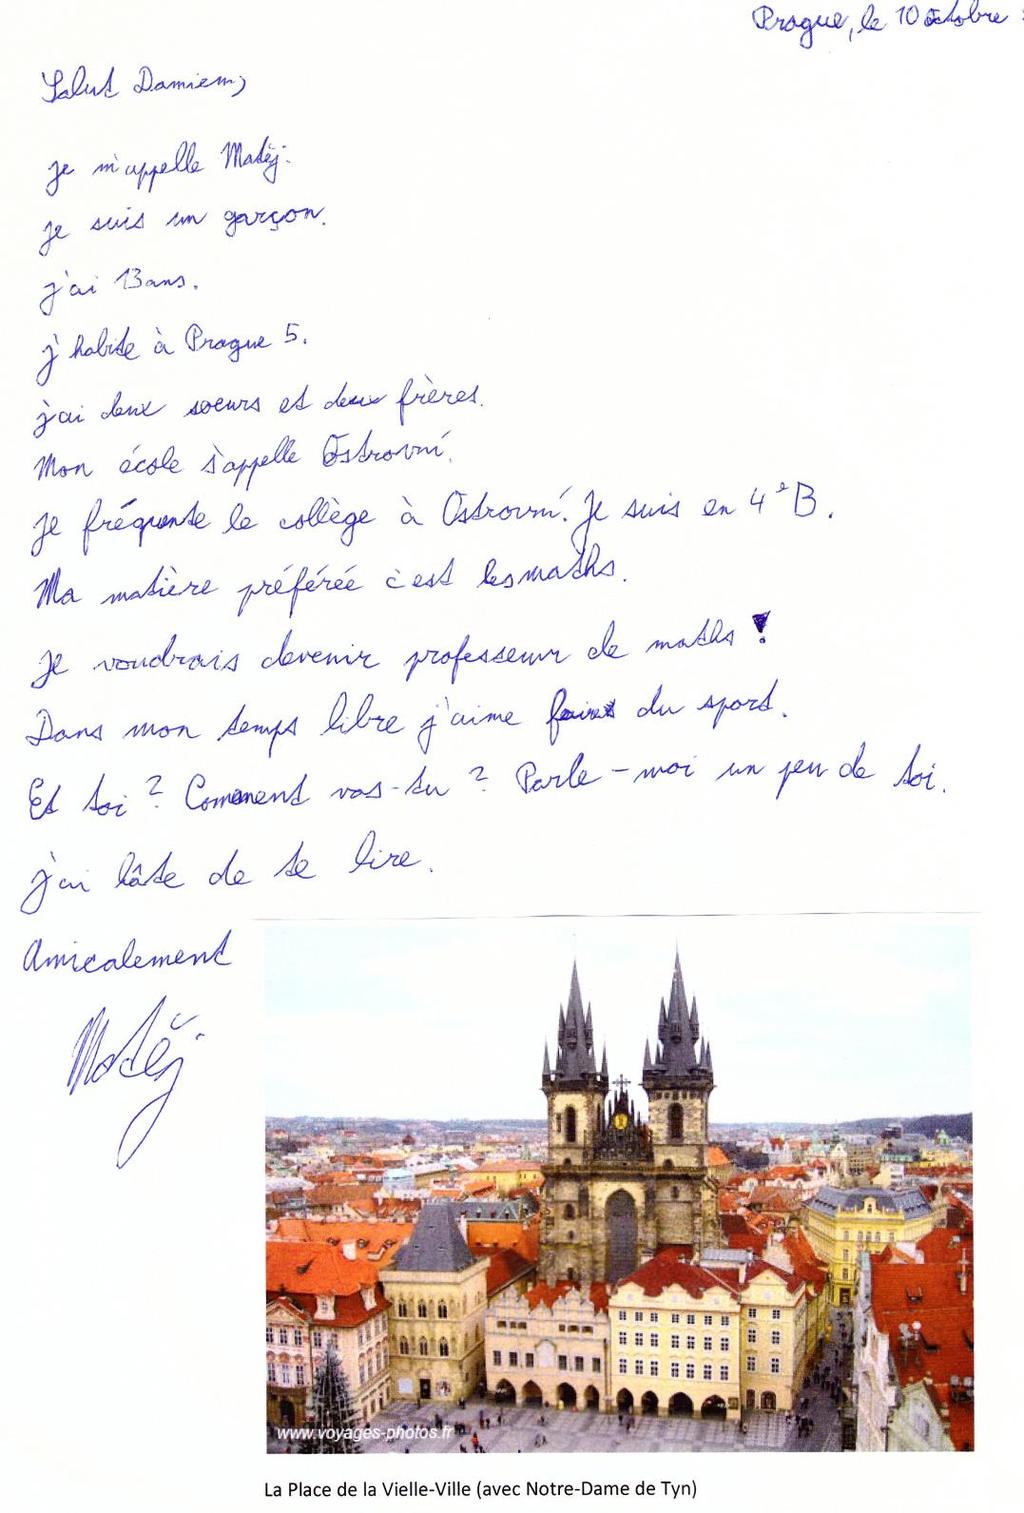 Prague, le 10 octobre
Salut Damien,
je m'appelle Matěj.
je suis un garçon.
j'ai 13 ans.
j'habite à Prague 5.
j'ai deux soeurs et deux frères.
Mon école s'appelle Ostrovní.
Je fréquente le collège à Ostrovní. Je suis en 4e B.
Ma matière préférée c'est les maths.
Je voudrais devenir professeur de maths !
Dans mon temps libre j'aime faire du sport.
Et toi ? Comment vas-tu ? Parle-moi un peu de toi.
j'ai hâte de te lire.
Amicalement
Matěj
www.voyages-photos.fr
La Place de la Vielle-Ville (avec Notre-Dame de Tyn)